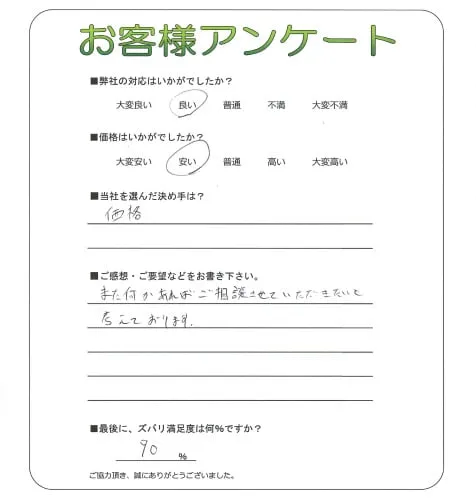 お客様アンケート
■弊社の対応はいかがでしたか？
大変良い 良い 普通 不満 大変不満
■価格はいかがでしたか？
大変安い 安い 普通 高い 大変高い
■当社を選んだ決め手は？
価格
■ご感想・ご要望などをお書き下さい。
また何かあればご相談させていただきたいと
考えております.
■最後に、ズバリ満足度は何％ですか？
90 ％
ご協力頂き、誠にありがとうございました。